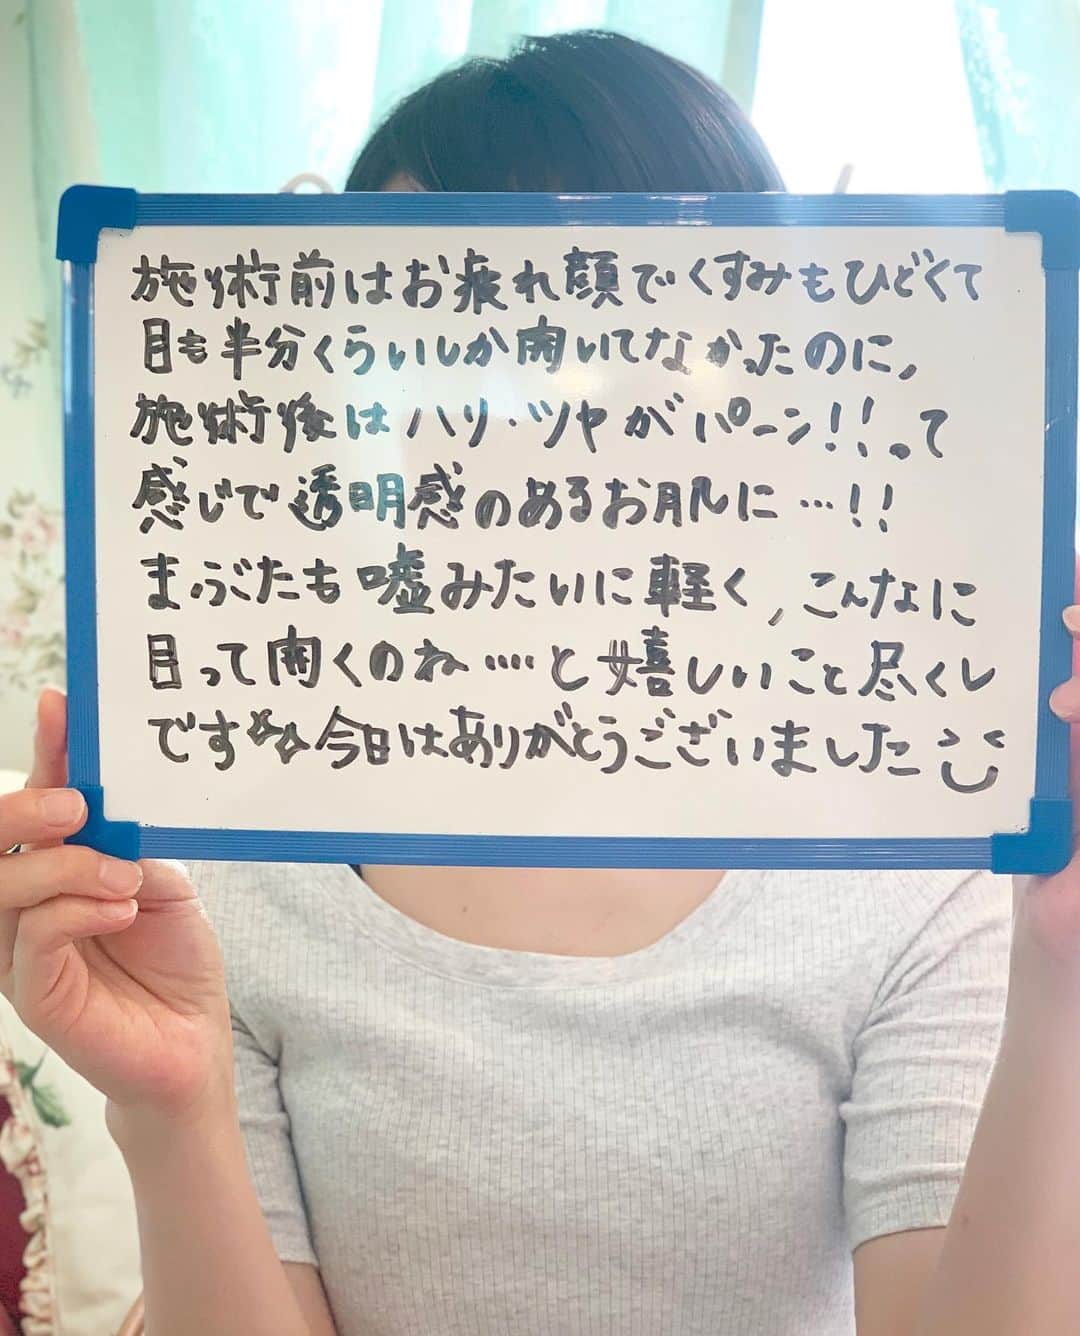 施術前はお疲れ顔でくすみもひどくて
目も半分くらいしか開いてなかったのに,
施術後はハリ・ツヤがパーン!!って
感じで透明感のあるお肌に…!!
まぶたも嘘みたいに軽く,こんなに
目って開くのね….と嬉しいこと尽くし
です☆☆今日はありがとうございました